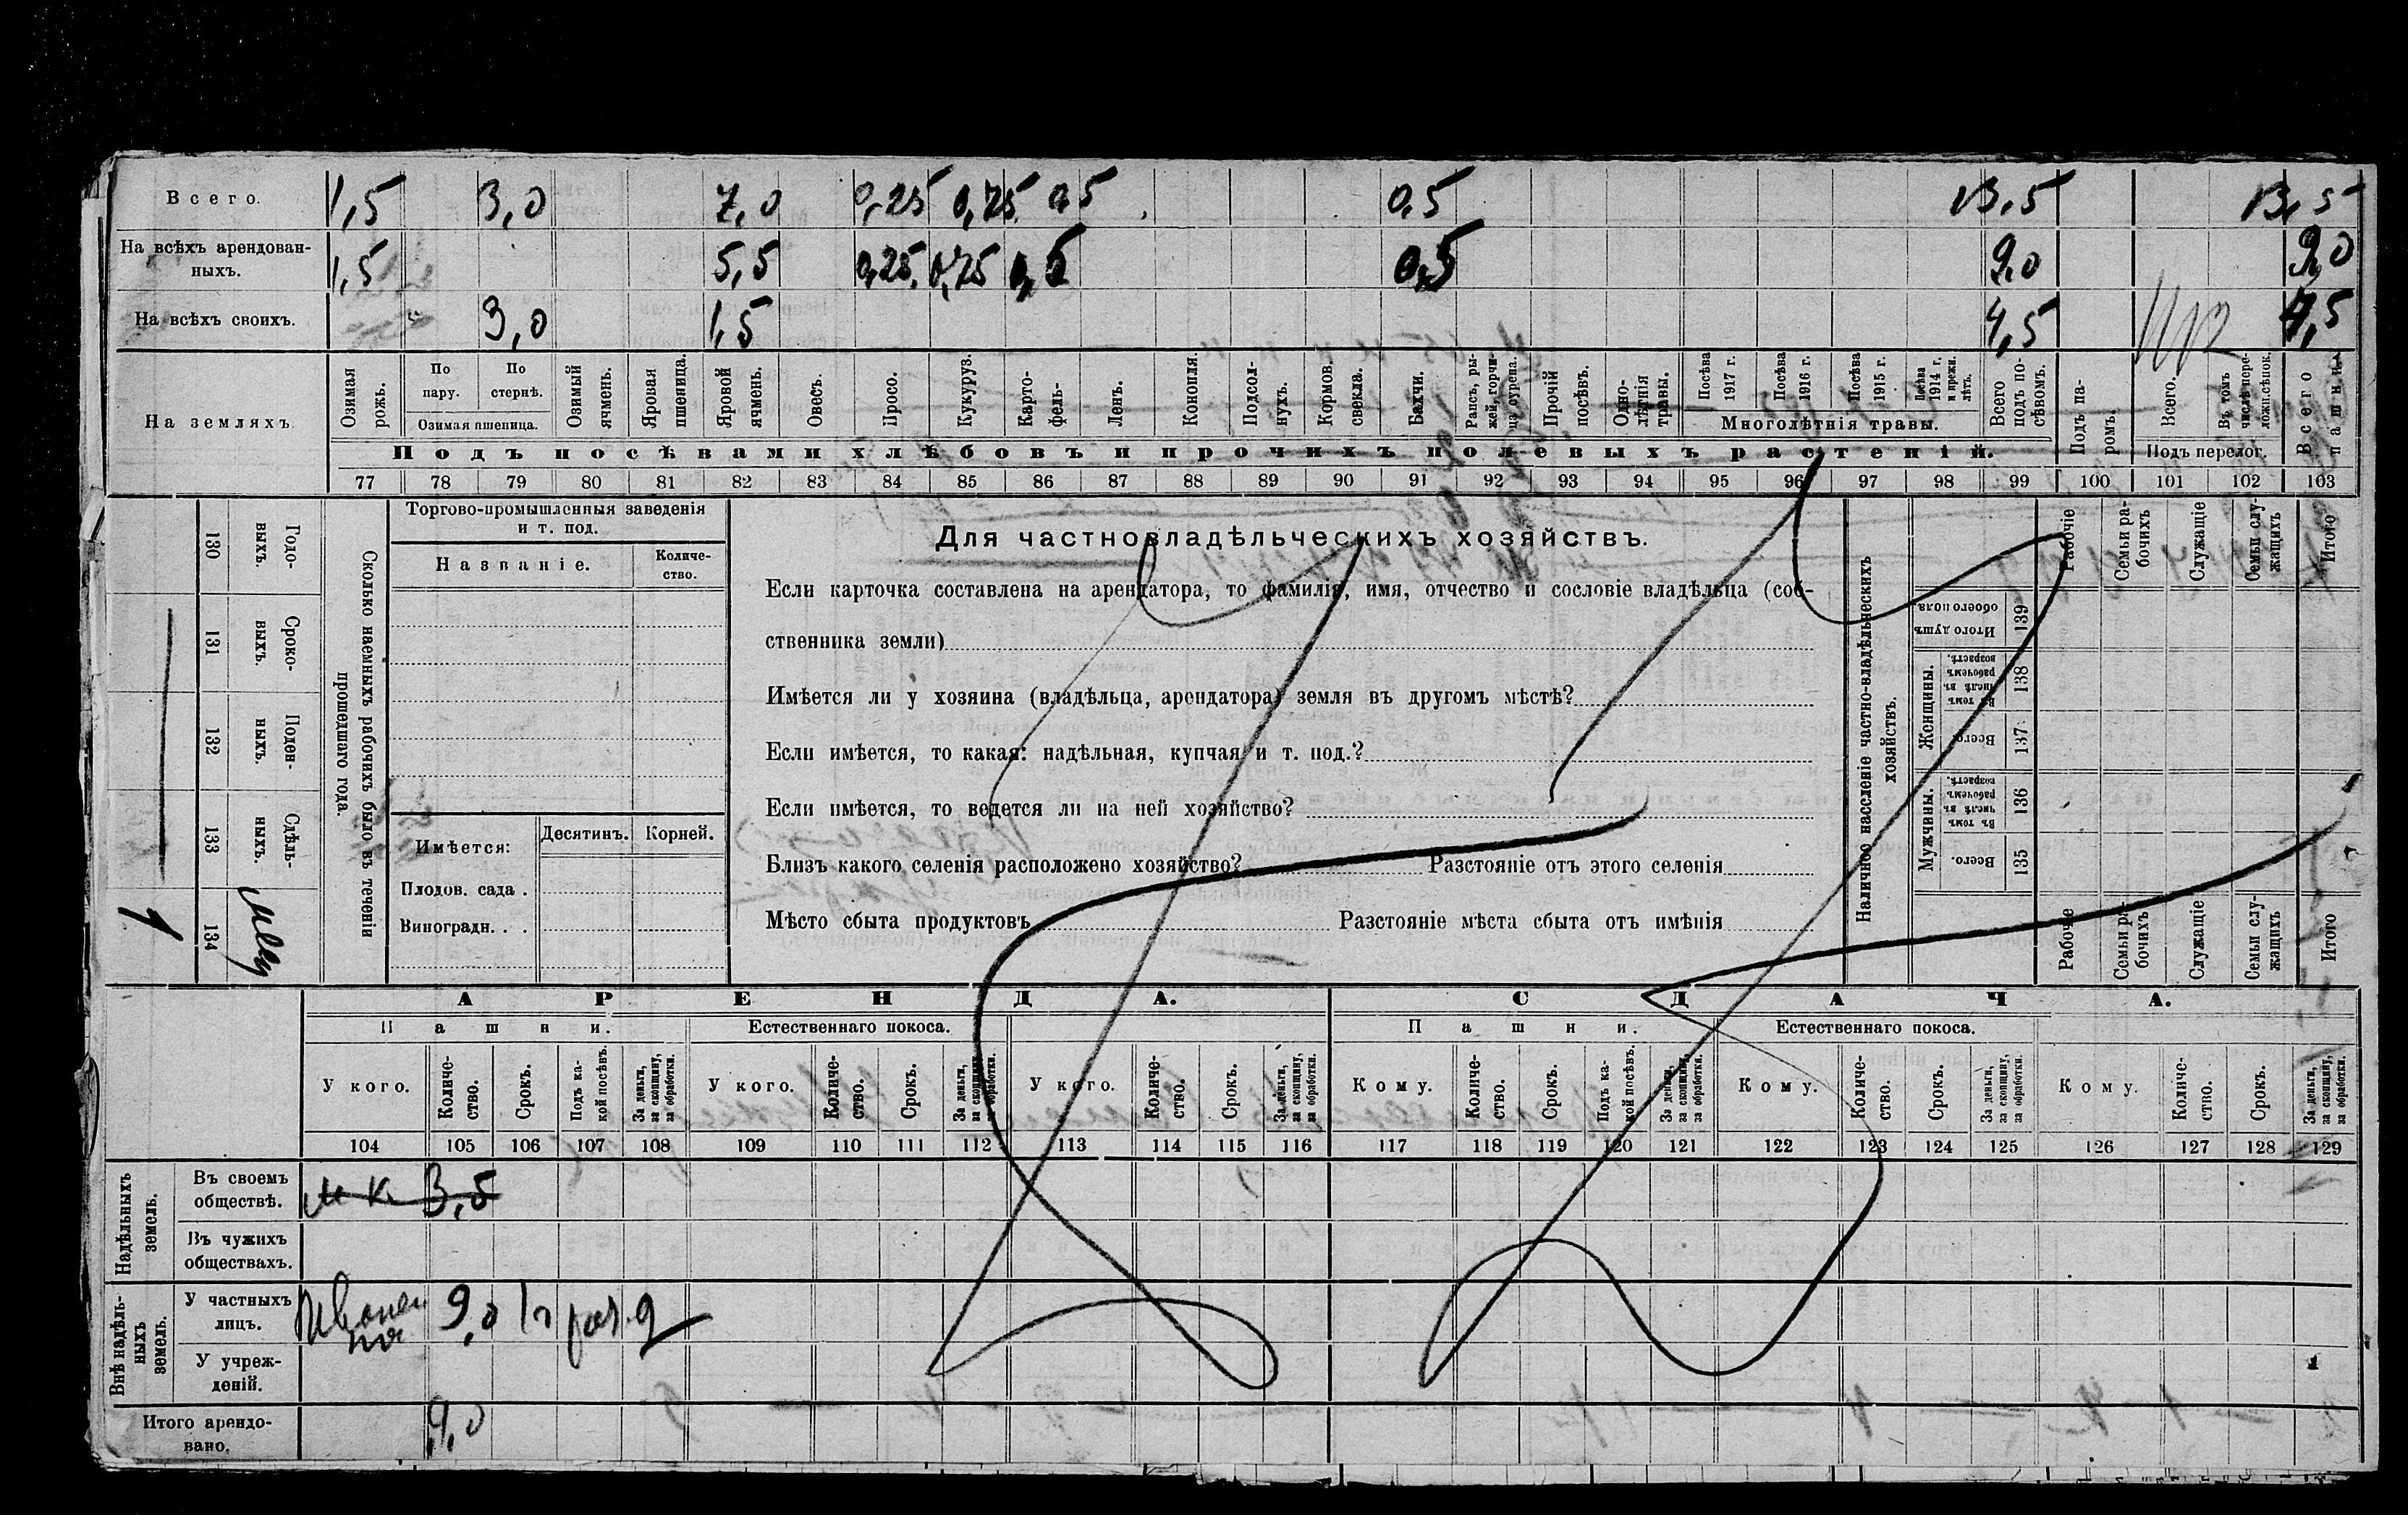 Всего. 1,5 3,0 7,0 0,25 0,75 0,5 0,5 13,5 13,5
На всѣхъ арендован-
ныхъ. 1,5 5,5 0,25 0,75 0,5 0,5 9,0 9,0
На всѣхъ своихъ. 3,0 1,5 4,5 4,5
На земляхъ.
Озимая рожь.
По пару.
По стернѣ.
Озимая пшеница.
Озимый ячмень.
Яровая пшеница.
Яровой ячмень.
Овесъ.
Просо.
Кукуруз.
Карто-
фель-
Ленъ.
Конопля.
Подсол-
нухъ.
Кормов. свекла.
Бахчи.
Рапсъ, ры-
жей, горчи-
ца сурепа.
Прочій посѣвъ.
Одно-
лѣтнія травы.
Посѣва 1917 г.
Посѣва 1916 г.
Посѣва 1915 г.
Посѣва 1914 г. и прежн. лѣтъ.
Многолѣтнія травы.
Всего подъ по-
сѣвомъ.
Подъ па-
ромъ.
Всего.
Въ томъ числѣ пере-
ложн. сѣнок.
Подъ перелог.
Всего пашни.
Подъ посѣвами хлѣбовъ и прочихъ полевыхъ растеній.
77 78 79 80 81 82 83 84 85 86 87 88 89 90 91 92 93 94 95 96 97 98 99 100 101 102 103
Сколько наемныхъ рабочихъ было въ теченіи
прошедшаго года.
Годо-
выхъ.
130
Сроко-
выхъ.
131
Поден-
ныхъ.
132
Сдѣль-
ныхъ.
133
134
1
Торгово-промышленныя заведенія
и т. под.
Названіе.
Количе-
ство.
Имѣется:
Десятинъ.
Корней.
Плодов. сада .
Виноградн. . .
Для частновладѣльческихъ хозяйствъ.
Если карточка составлена на арендатора, то фамилія, имя, отчество и сословіе владѣльца (соб-
ственника земли)
Имѣется ли у хозяина (владѣльца, арендатора) земля въ другомъ мѣстѣ?
Если имѣется, то какая: надѣльная, купчая и т. под.?
Если имѣется, то ведется ли на ней хозяйство?
Близъ какого селенія расположено хозяйство? Разстояніе отъ этого селенія
Мѣсто сбыта продуктовъ Разстояніе мѣста сбыта отъ имѣнія
Наличное населеніе частно-владѣльческихъ
хозяйствъ.
Рабочіе
Семьи ра-
бочихъ
Служащіе
Семьи слу-
жащихъ
Итого
Итого душъ обоего пола.
139
Женщины.
Въ томъ числѣ въ рабочемъ возрастѣ.
138
Всего.
137
Мужчины.
Въ томъ числѣ въ рабочемъ возрастѣ.
136
Всего.
135
Рабочіе
Семьи ра-
бочихъ
Служащіе
Семьи слу-
жащихъ
Итого
АРЕНДА. СДАЧА.
Пашни. Естественнаго покоса. Пашни. Естественнаго покоса.
У кого.
Количе-
ство.
Срокъ.
Подъ ка-
кой посѣвъ.
За деньги, за скопщину, за обработки.
У кого.
Количе-
ство.
Срокъ.
За деньги, за скопщину, за обработки.
У кого.
Количе-
ство.
Срокъ.
За деньги, за скопщину, за обработки.
Кому.
Количе-
ство.
Срокъ.
Подъ ка-
кой посѣвъ.
За деньги, за скопщину, за обработки.
Кому.
Количе-
ство.
Срокъ.
За деньги, за скопщину, за обработки.
Кому.
Количе-
ство.
Срокъ.
За деньги, за скопщину, за обработки.
104 105 106 107 108 109 110 111 112 113 114 115 116 117 118 119 120 121 122 123 124 125 126 127 128 129
Надѣльныхъ
земель.
Въ своемъ
обществѣ. 3,5
Въ чужихъ
обществахъ.
Внѣ надѣль-
ныхъ
земель.
У частныхъ
лицъ. 9,0
У учреж-
деній.
Итого арендо-
вано. 9,0